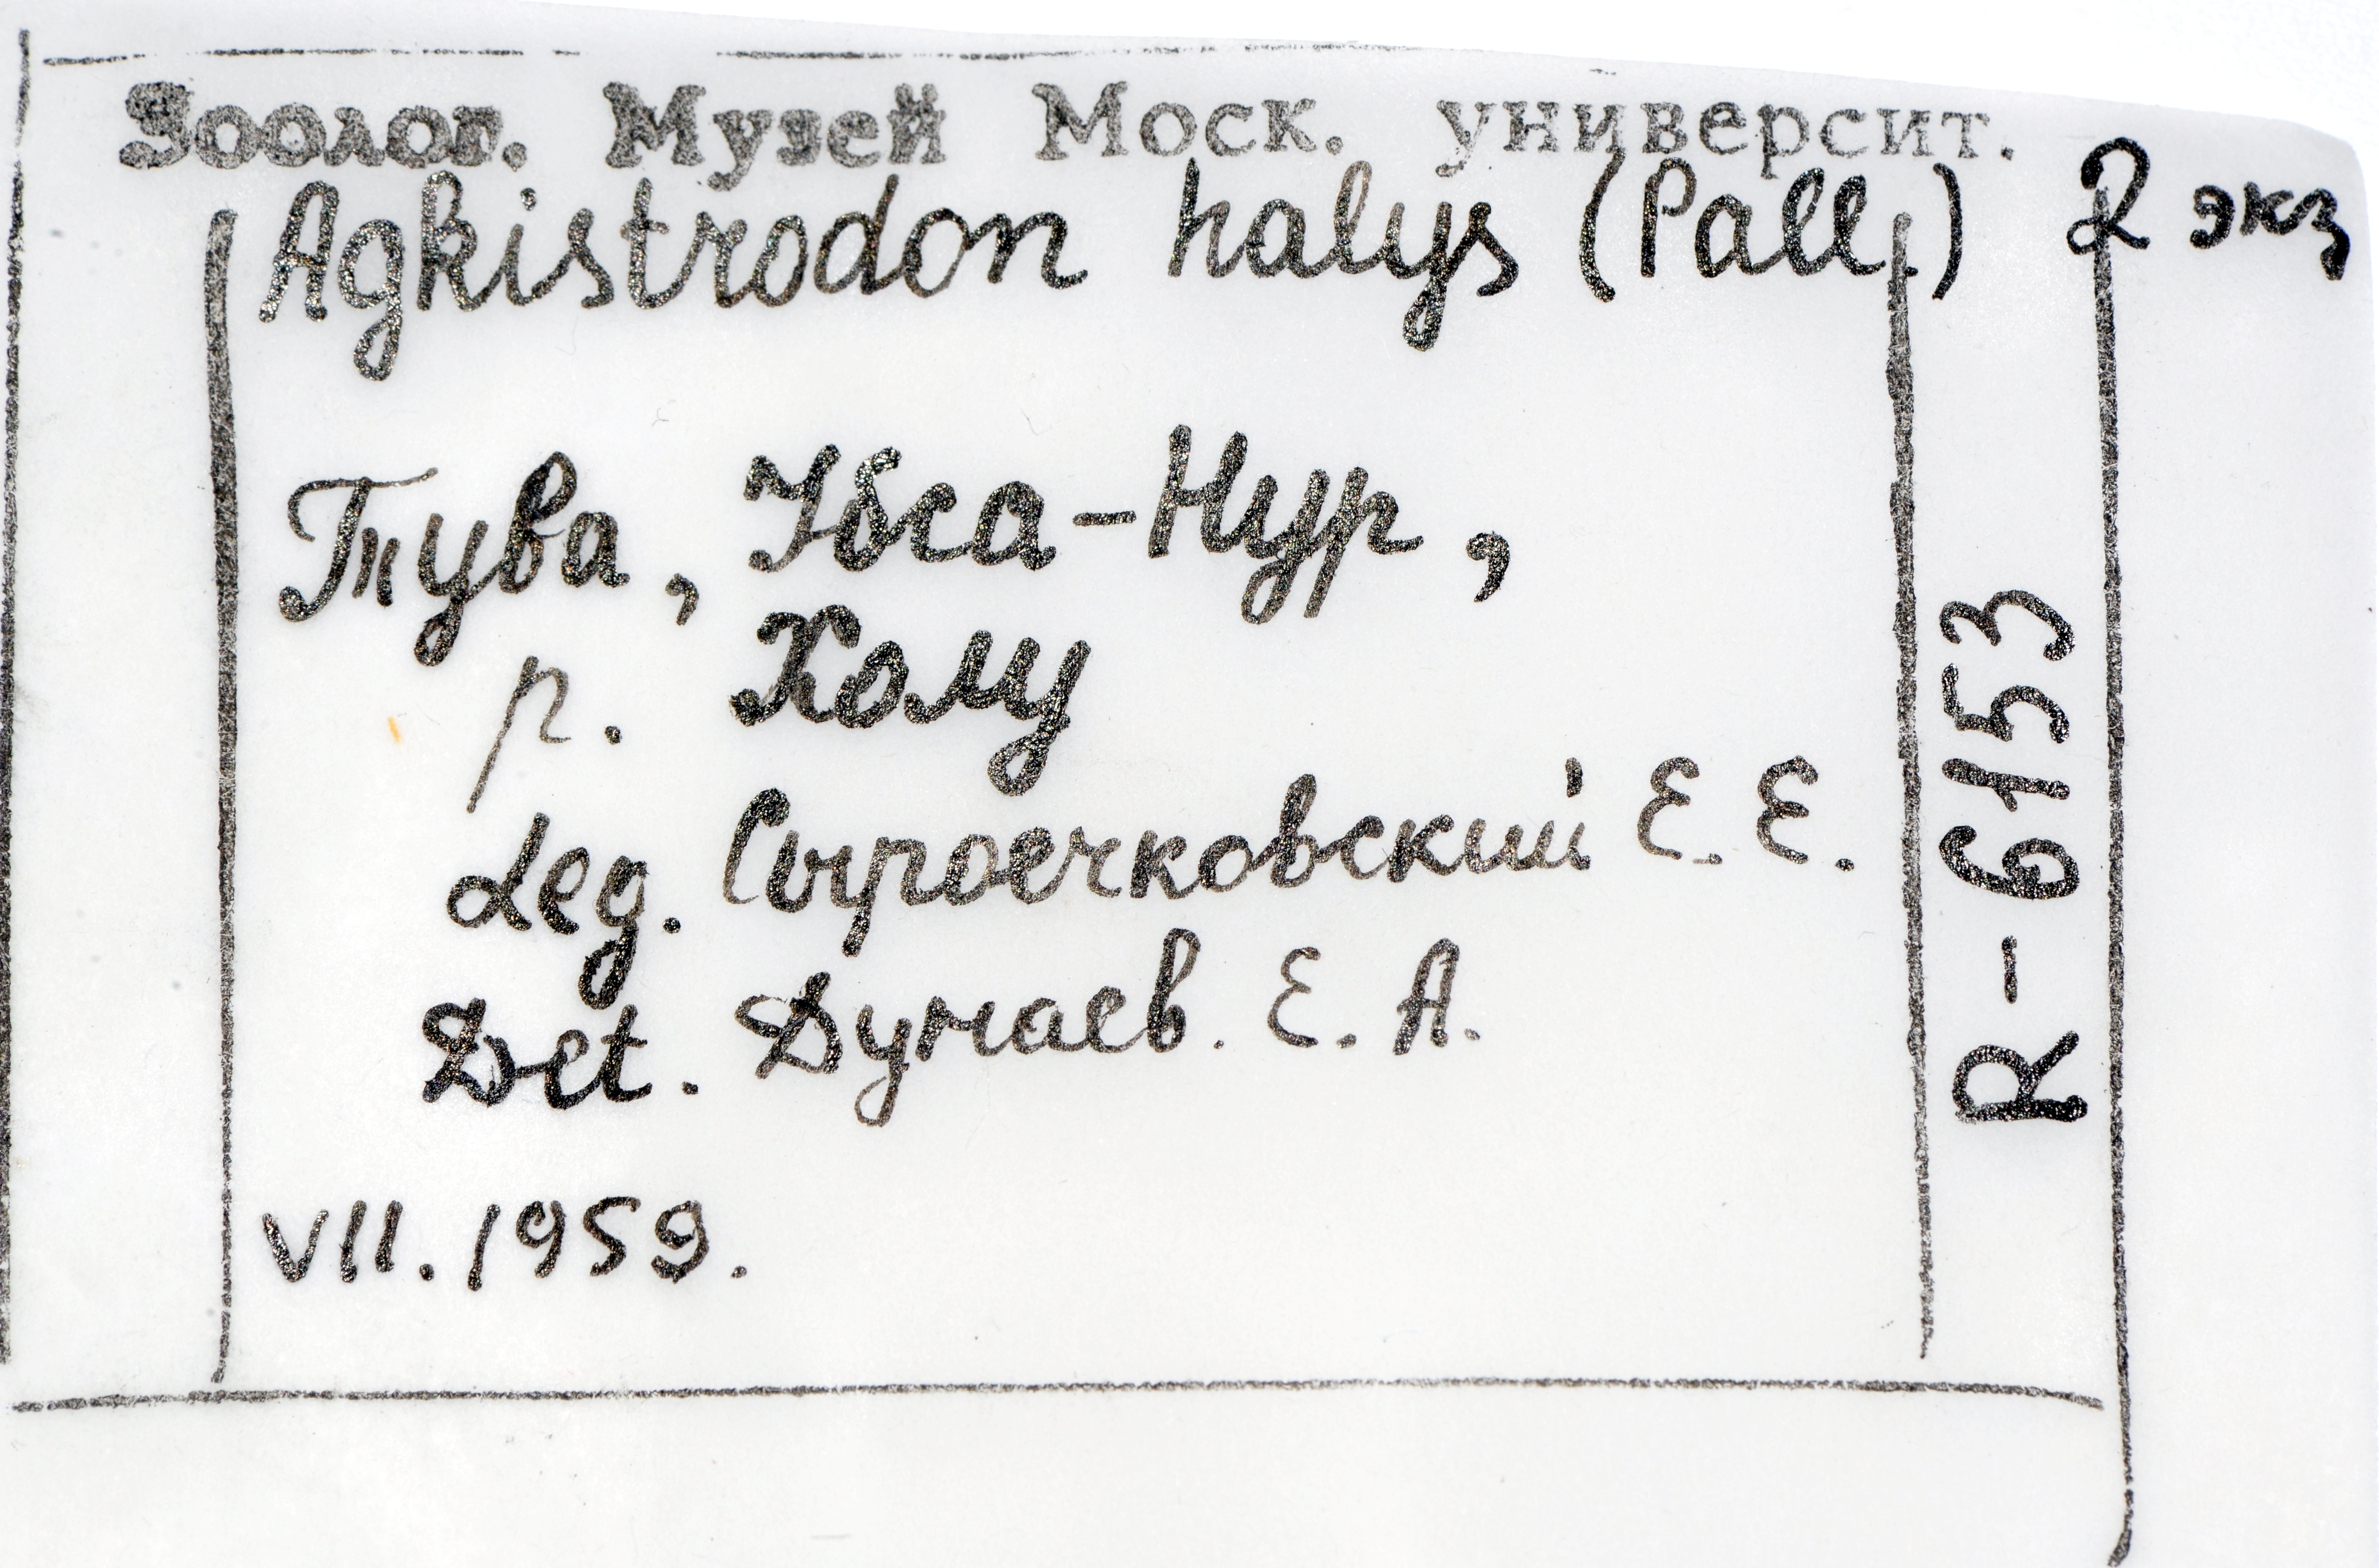 Зоолог. Музей Моск. университ.
Agkistrodon halys (Pall.) 2 экз
Тува, Убса-Нур,
р. Холу
Leg. Сыроечковский Е. Е.
Det. Дунаев. Е. А.
VII. 1959.
R-6153